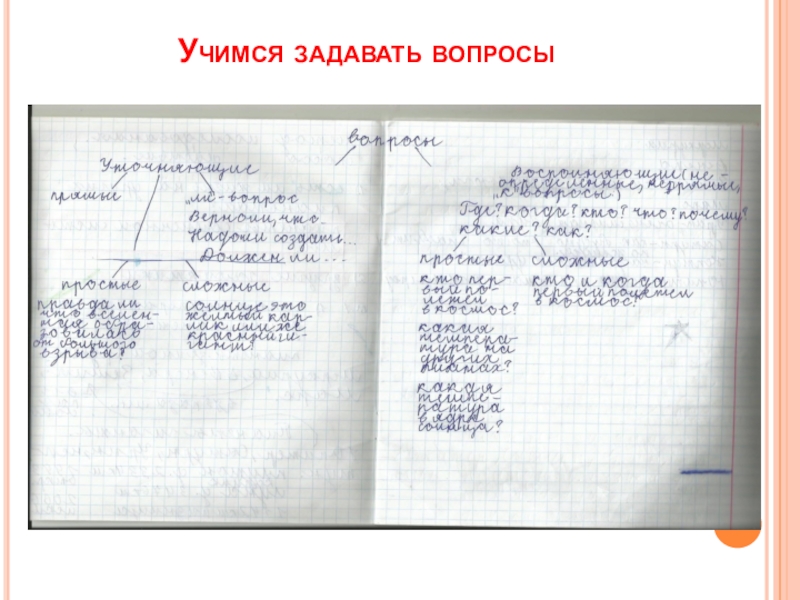 Учимся задавать вопросы
вопросы
Уточняющие
прямые
„ли“-вопрос
Верно ли, что..
Надо ли создать...
Должен ли...
простые
правда ли
что вселен-
ная обра-
зовалась
от большого
взрыва?
сложные
солнце это
жёлтый кар-
лик или же
красный ги-
гант?
Восполняющие (не-
определённые, непрямые,
„к“ вопросы)
Где? когда? кто? что? почему?
какие? как?
простые
кто пер-
вый по-
летел
в космос?
какая
темпера-
тура на
других
планетах?
какая
темпе-
ратура
в ядре
солнца?
сложные
кто и когда
первый полетел
в космос?